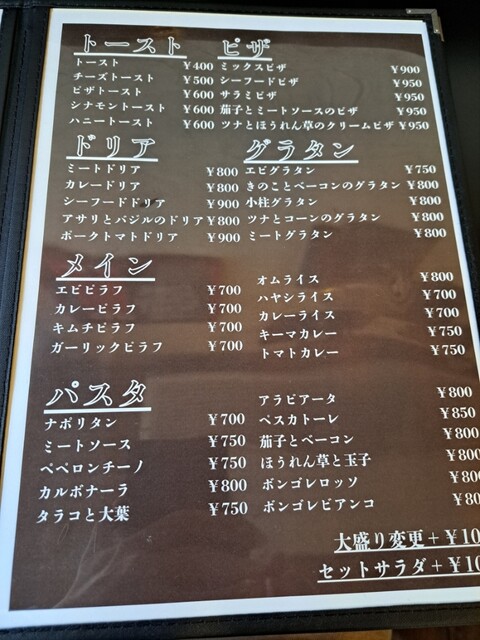 トースト
トースト ¥400
チーズトースト ¥500
ピザトースト ¥600
シナモントースト ¥600
ハニートースト ¥600
ピザ
ミックスピザ ¥900
シーフードピザ ¥950
サラミピザ ¥950
茄子とミートソースのピザ ¥950
ツナとほうれん草のクリームピザ ¥950
ドリア
ミートドリア ¥800
カレードリア ¥800
シーフードドリア ¥900
アサリとバジルのドリア ¥800
ポークトマトドリア ¥900
グラタン
エビグラタン ¥750
きのことベーコンのグラタン ¥800
小柱グラタン ¥800
ツナとコーンのグラタン ¥800
ミートグラタン ¥800
メイン
エビピラフ ¥700
カレーピラフ ¥700
キムチピラフ ¥700
ガーリックピラフ ¥700
オムライス ¥800
ハヤシライス ¥700
カレーライス ¥700
キーマカレー ¥750
トマトカレー ¥750
パスタ
ナポリタン ¥700
ミートソース ¥750
ペペロンチーノ ¥750
カルボナーラ ¥800
タラコと大葉 ¥750
アラビアータ ¥800
ペスカトーレ ¥850
茄子とベーコン ¥800
ほうれん草と玉子 ¥800
ボンゴレロッソ ¥800
ボンゴレビアンコ ¥80
大盛り変更+¥10
セットサラダ+¥10